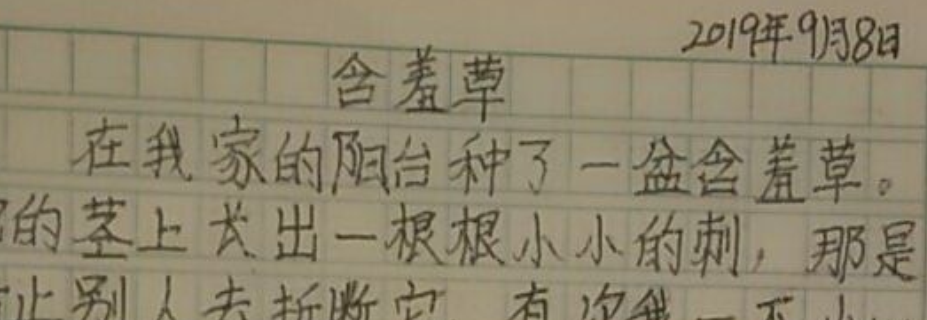 2019年9月8日
含羞草
在我家的阳台种了一盆含羞草。
的茎上长出一根根小小的刺，那是
止别人去折断它 有次我一不小